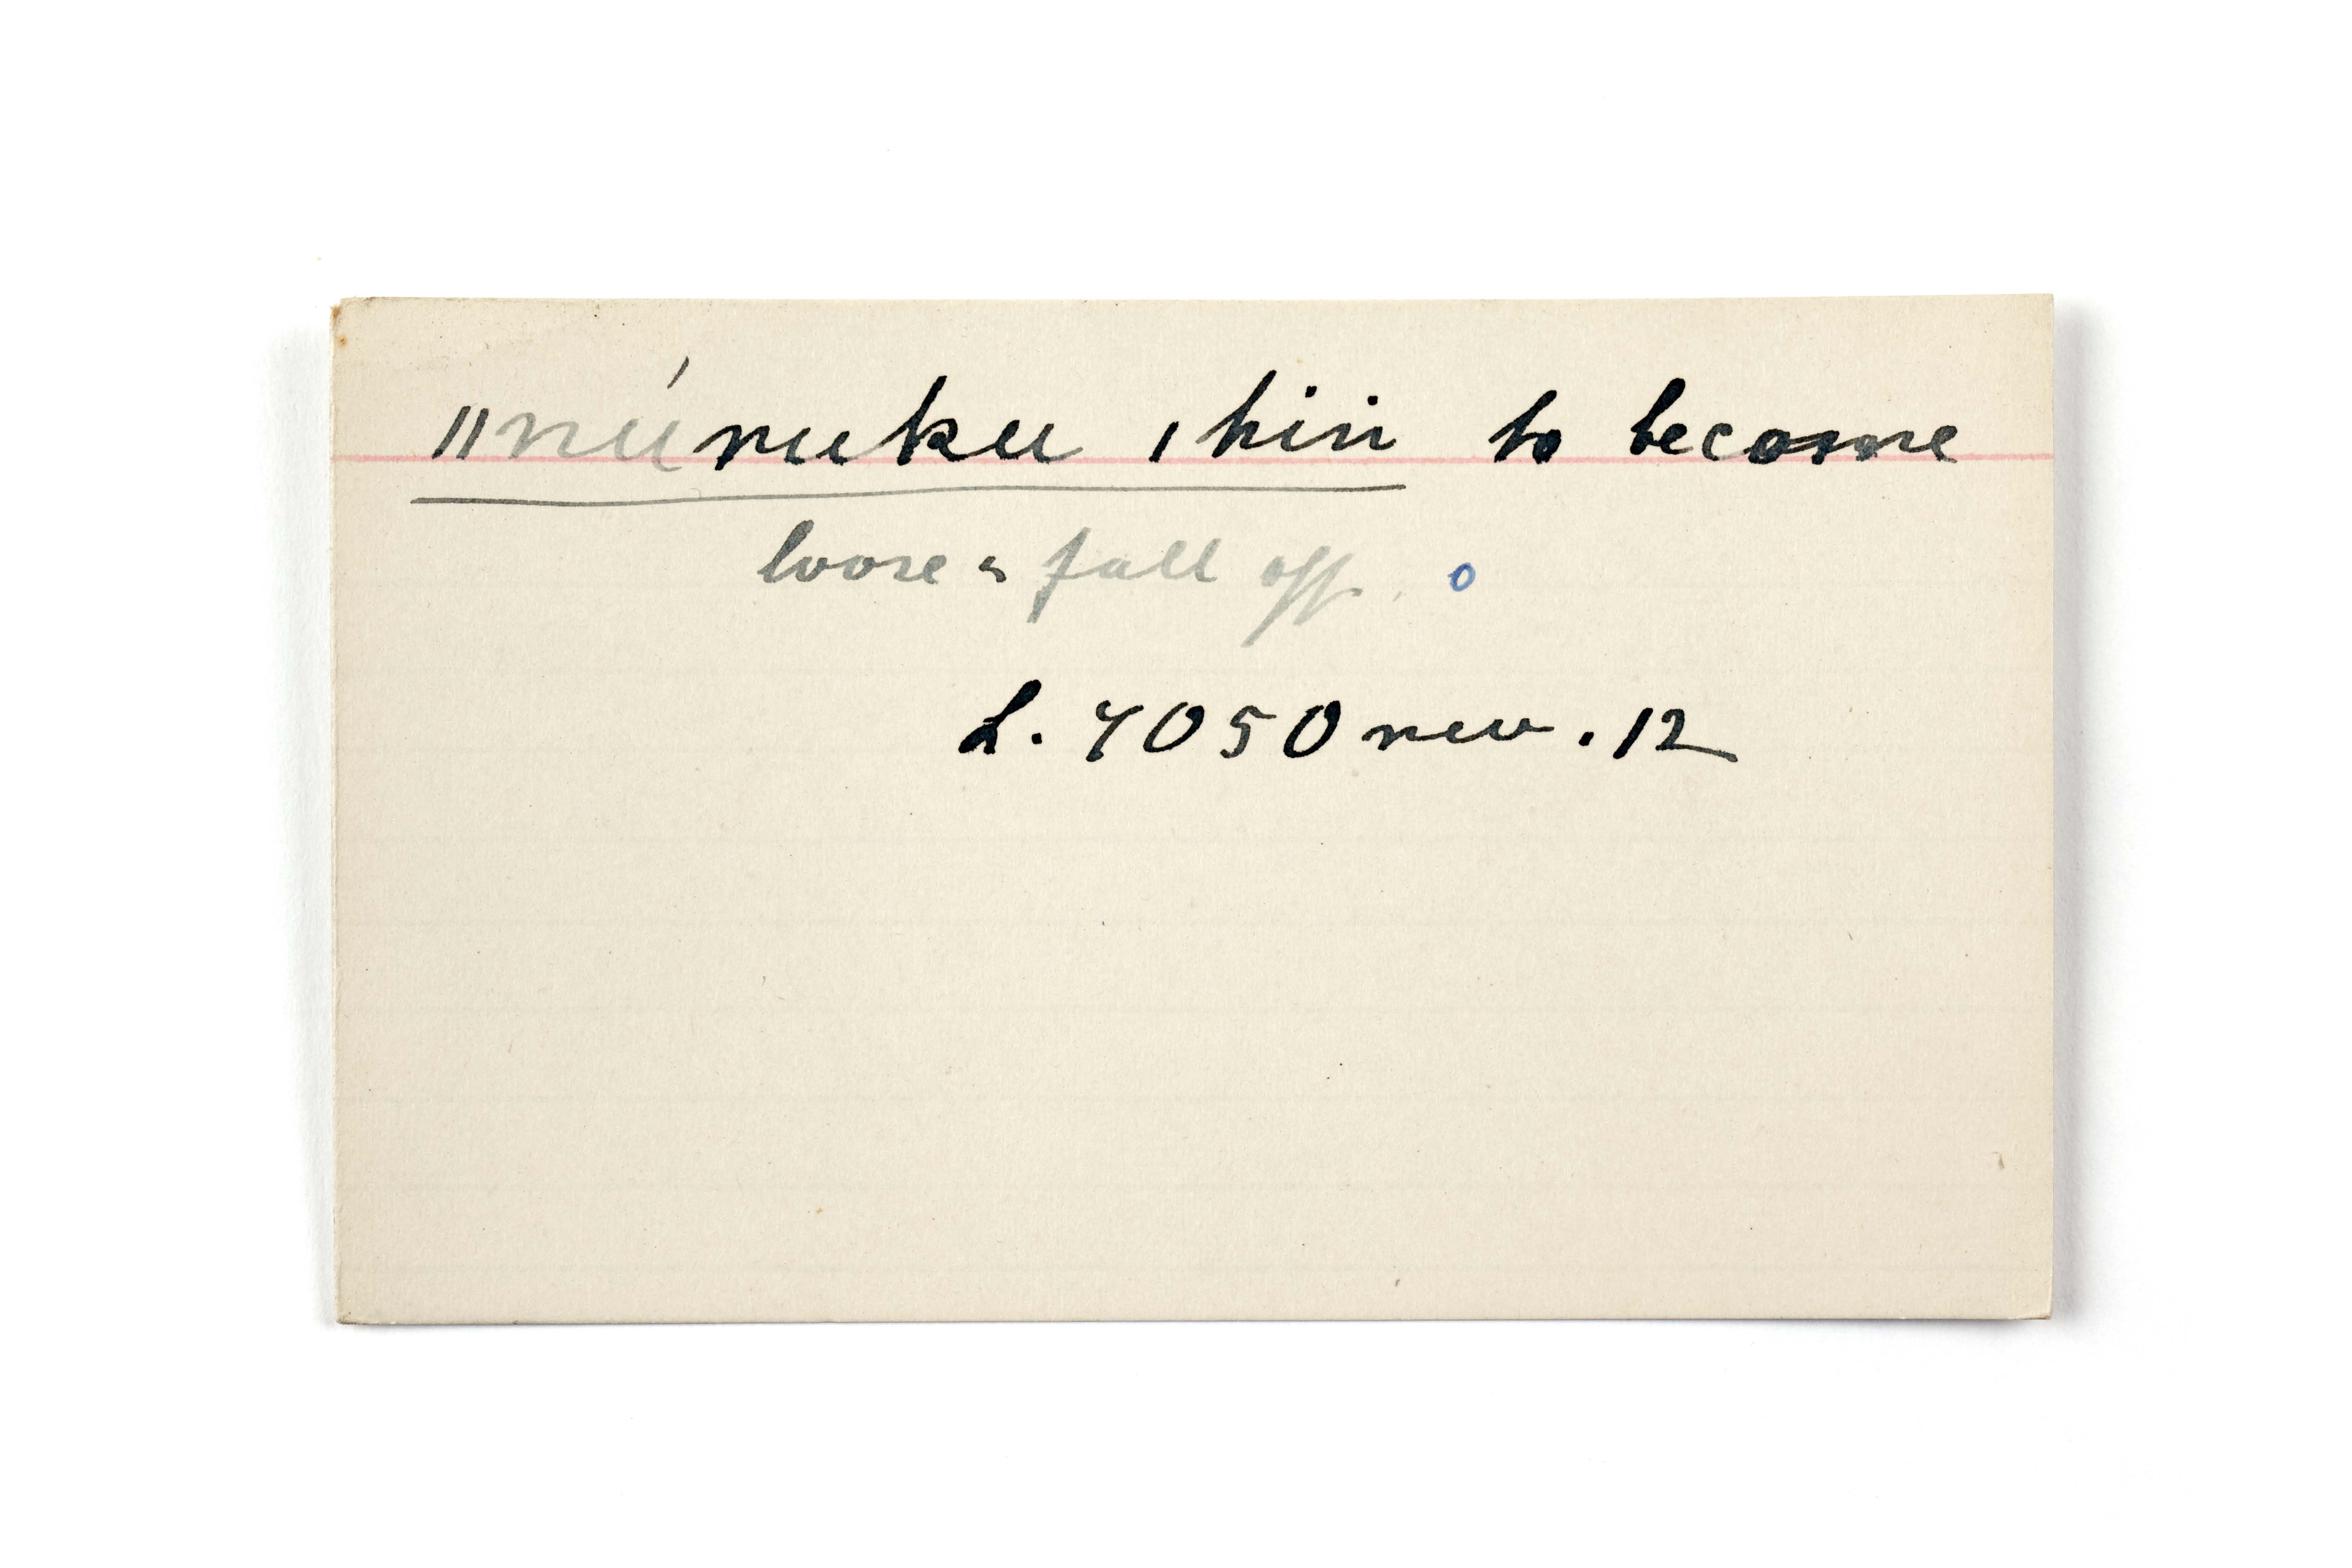 ǁnúruku ǀhin to become
loose & fall off.
L. 7050 rev. 12